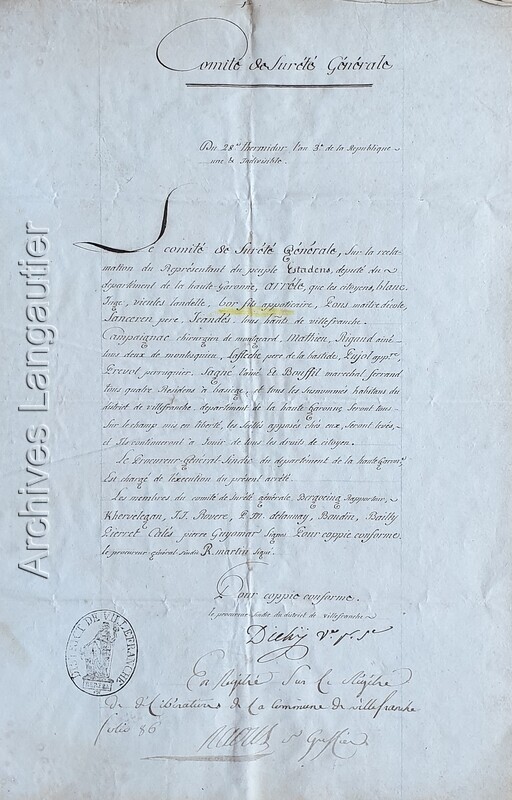 Comité de Sureté Générale
Du 28e Thermidor l'an 3e de la Republique
une & Indivisible.
Le comité de Sureté Générale, Sur la recla-
mation du Représentant du peuple Estadens, député du
département de la haute Garonne, arrête, que les citoyens, blanc
Juge, vieules landelle, bor fils appoticaire, Pons maitre décole,
Sanceren pere, Irandés tous habts de villefranche.
Campaignac chirurgien de montgeard, Mathieu, Rigaud ainé
tous deux de montesquieu, Lafleche pere de la bastide, Pujol
Prevol perruquier, Sagné l'ainé Et Bouffil marechal ferrand
tous quatre Residens a basiege, et tous les Susnommés habitans du
district de villefranche, departement de la haute Garonne Seront tous
Sur le champ mis en liberté, les Scellés apposés chés eux, Seront levés,
et Ils continueront a Jouir de tous les droits de citoyen.
Le Procureur-Général-Sindic du département de la haute Garonne
Est chargé de l'execution du présent arrêté.
Les membres du comité de Sureté générale, Bergoeing Rapporteur,
Khervelegan, J.J. Rovere, P. M. delaunay, Boudin, Bailly
Pierret Calès pierre Guyomar Signés Pour coppie conforme,
le procureur général Sindic R. martin Signé
Pour coppie conforme.
le procureur Sindic du district de villefranche
En Régitré Sur le Régitre
De déliberations De la Commune de villefranche
folio 86
Sre Greffier
DISTRICT DE VILLEFRANCHE
Archives Langautier